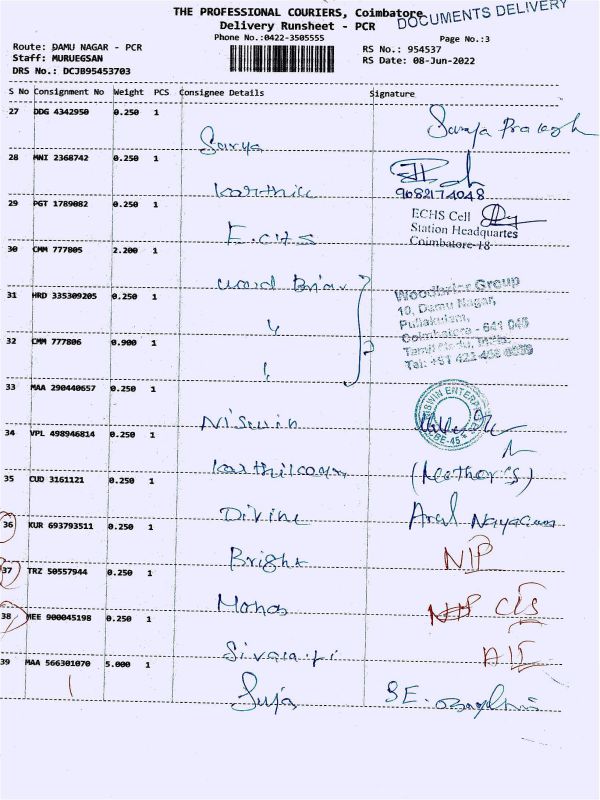 THE PROFESSIONAL COURIERS, Coimbatore
DOCUMENTS DELIVERY
Delivery Runsheet - PCR
Phone No.:0422-3505555
Page No.:3
Route: DAMU NAGAR - PCR
RS No.: 954537
Staff: MURUEGSAN
RS Date: 08-Jun-2022
DRS No.: DCJB95453703
S No Consignment No Weight PCS Consignee Details Signature
27 DDG 4342950 0.250 1
Surya Prakash
Surya
28 MNI 2368742 0.250 1
Karthic
9682174048
29 PGT 1789082 0.250 1
ECHS Cell
Station Headquartes
E.CHS
Coimbatore-18
30 CMM 777805 2.200 1
Wood Briar
31 HRD 335309205 0.250 1
Woodbriar Group
10, Damu Nagar,
Puliakulam,
Coimbatore - 641 045
32 CMM 777806 0.900 1
Tamil Nadu, India.
33 MAA 290440657 0.250 1
Niswin
34 VPL 498946814 0.250 1
35 CUD 3161121 0.250 1
Divine
36 KUR 693793511 0.250 1
Bright
NIP
37 TRZ 50557944 0.250 1
38 MEE 900045198 0.250 1
39 MAA 566301070 5.000 1
Suja